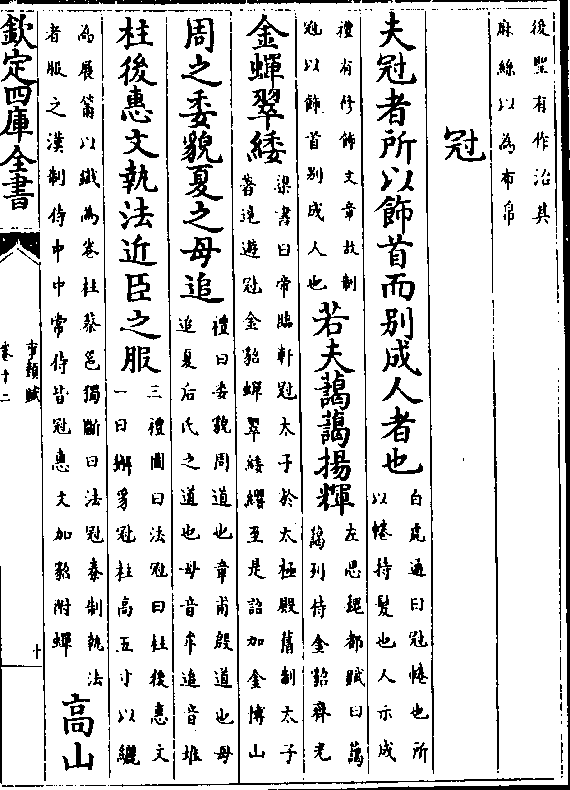 後聖有作治其
麻絲以為布帛
冠
夫冠者所以飾首而别成人者也白虎通曰冠惓也所
以惓持髮也人示成
禮有修飾文章故制
冠以飾首别成人也若夫藹藹揚輝左思魏都賦曰藹
藹列侍金貂齊光
金蟬翠緌梁書曰帝臨軒冠太子於太極殿舊制太子
著逺遊冠金貂蟬翠緌纓至是詔加金博山
周之委貌夏之母追禮曰委貌周道也章甫殷道也母
追夏后氏之道也母音牟追音堆
柱後惠文執法近臣之服三禮圖曰法冠曰柱後惠文
一曰獬豸冠柱高五寸以纚
為展筩以鐵為卷柱蔡邕獨斷曰法冠秦制執法
者服之漢制侍中中常侍皆冠惠文加貂附蟬高山
欽定四庫全書
事類賦
卷十二
十